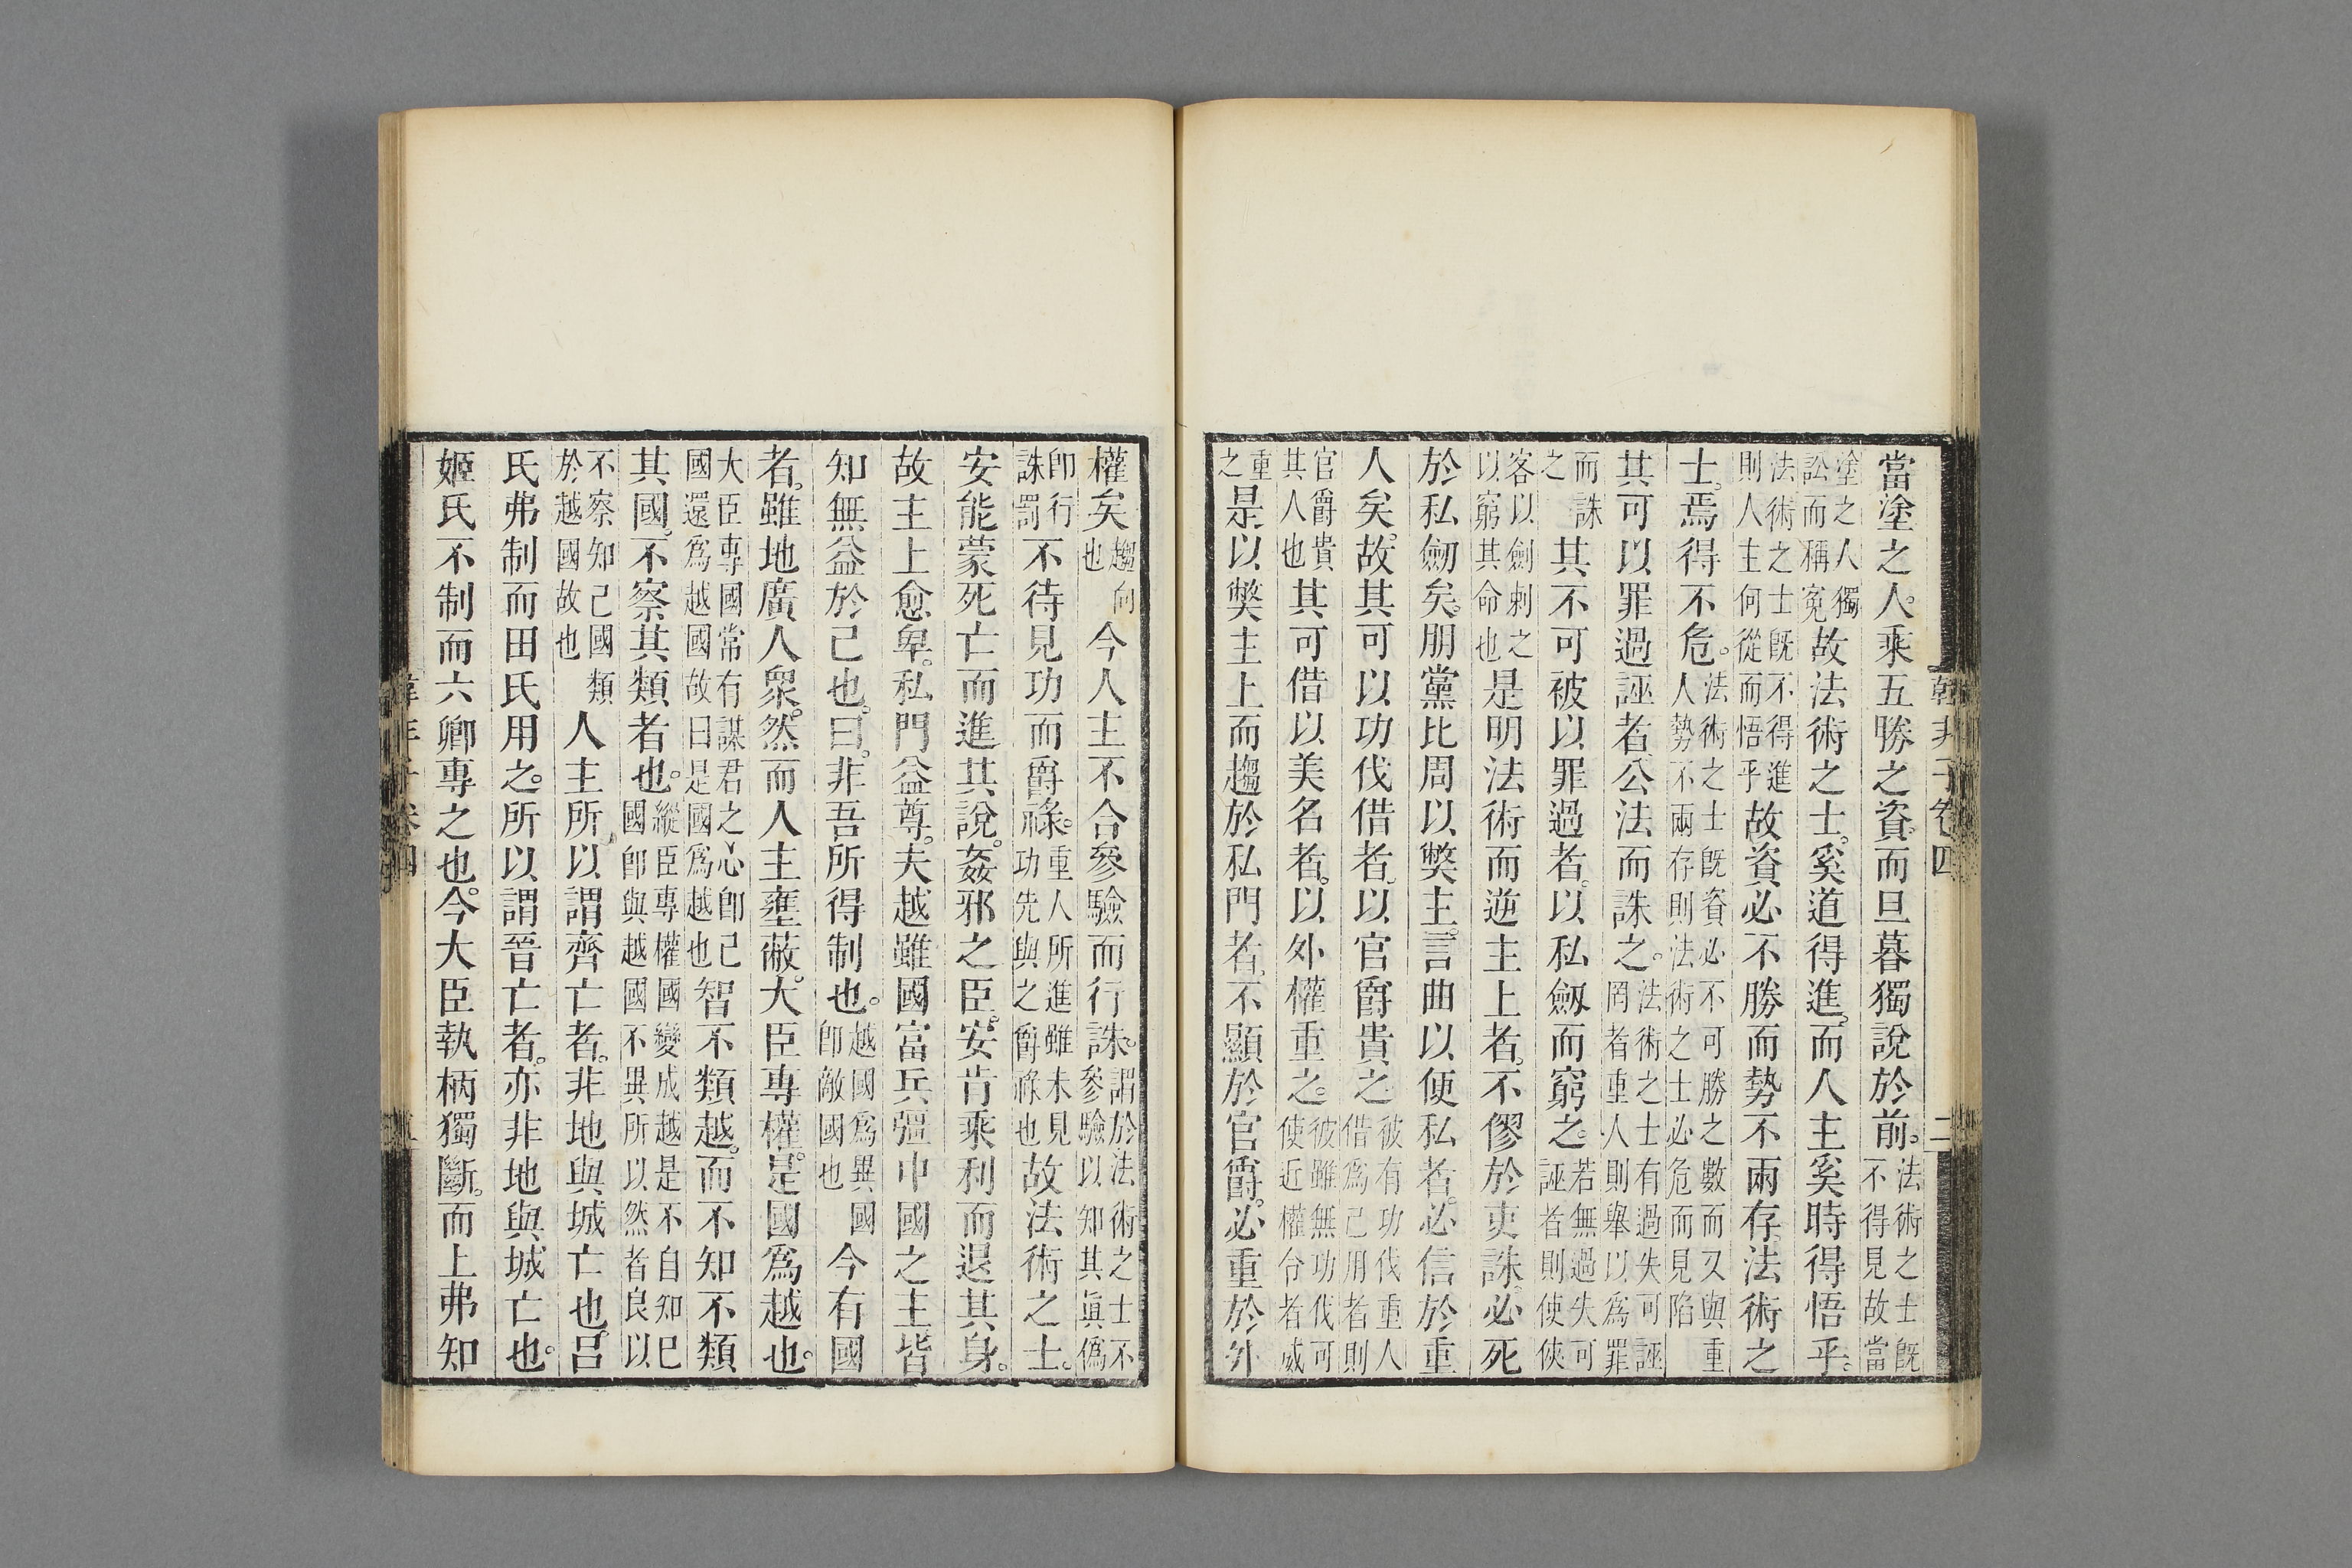 韓非子卷四 二
當塗之人。乘五勝之資。而旦暮獨說於前。法術之士旣不得見故當
塗之人獨訟而稱寃故法術之士。奚道得進。而人主奚時得悟乎。
法術之士旣不得進則人主何從而悟乎故資必不勝而勢不兩存。法術之
士。焉得不危。法術之士旣資必不可勝之數而又與重人勢不兩存則法術之士必危而見陷
其可以罪過誣者公法而誅之。法術之士有過失可誣罔者重人則舉以爲罪
而誅之其不可被以罪過者。以私劔而窮之。若無過失可誣者則使俠
客以劍刺之以窮其命也是明法術而逆主上者。不僇於吏誅。必死
於私劒矣。朋黨比周以獘主。言曲以便私者。必信於重
人矣。故其可以功伐借者。以官爵貴之彼有功伐重人借爲己用者則
官爵貴其人也其可借以美名者。以外權重之。彼雖無功伐可使近權令者威
重之是以獘主上而趨於私門者。不顯於官爵。必重於外
權矣趨向也今人主不合參驗而行誅。謂於法術之士不參驗以知其眞僞
卽行誅罰不待見功而爵祿。重人所進雖未見功先與之爵祿也故法術之士。
安能蒙死亡而進其說。姦邪之臣。安肯乘利而退其身。
故主上愈卑。私門益尊。夫越雖國富兵彊中國之主皆
知無益於己也。曰。非吾所得制也。越國爲異國卽敵國也今有國
者。雖地廣人衆。然而人主壅蔽。大臣專權。是國爲越也。
大臣專國常有謀君之心卽己國還爲越國故曰是國爲越也智不類越。而不知不類
其國。不察其類者也。縱臣專權國變成越是不自知已國卽與越國不異所以然者良以
不察知己國類於越國故也人主所以謂齊亡者。非地與城亡也。呂
氏弗制而田氏用之。所以謂晉亡者。亦非地與城亡也。
姬氏不制而六卿專之也。今大臣執柄獨斷。而上弗知